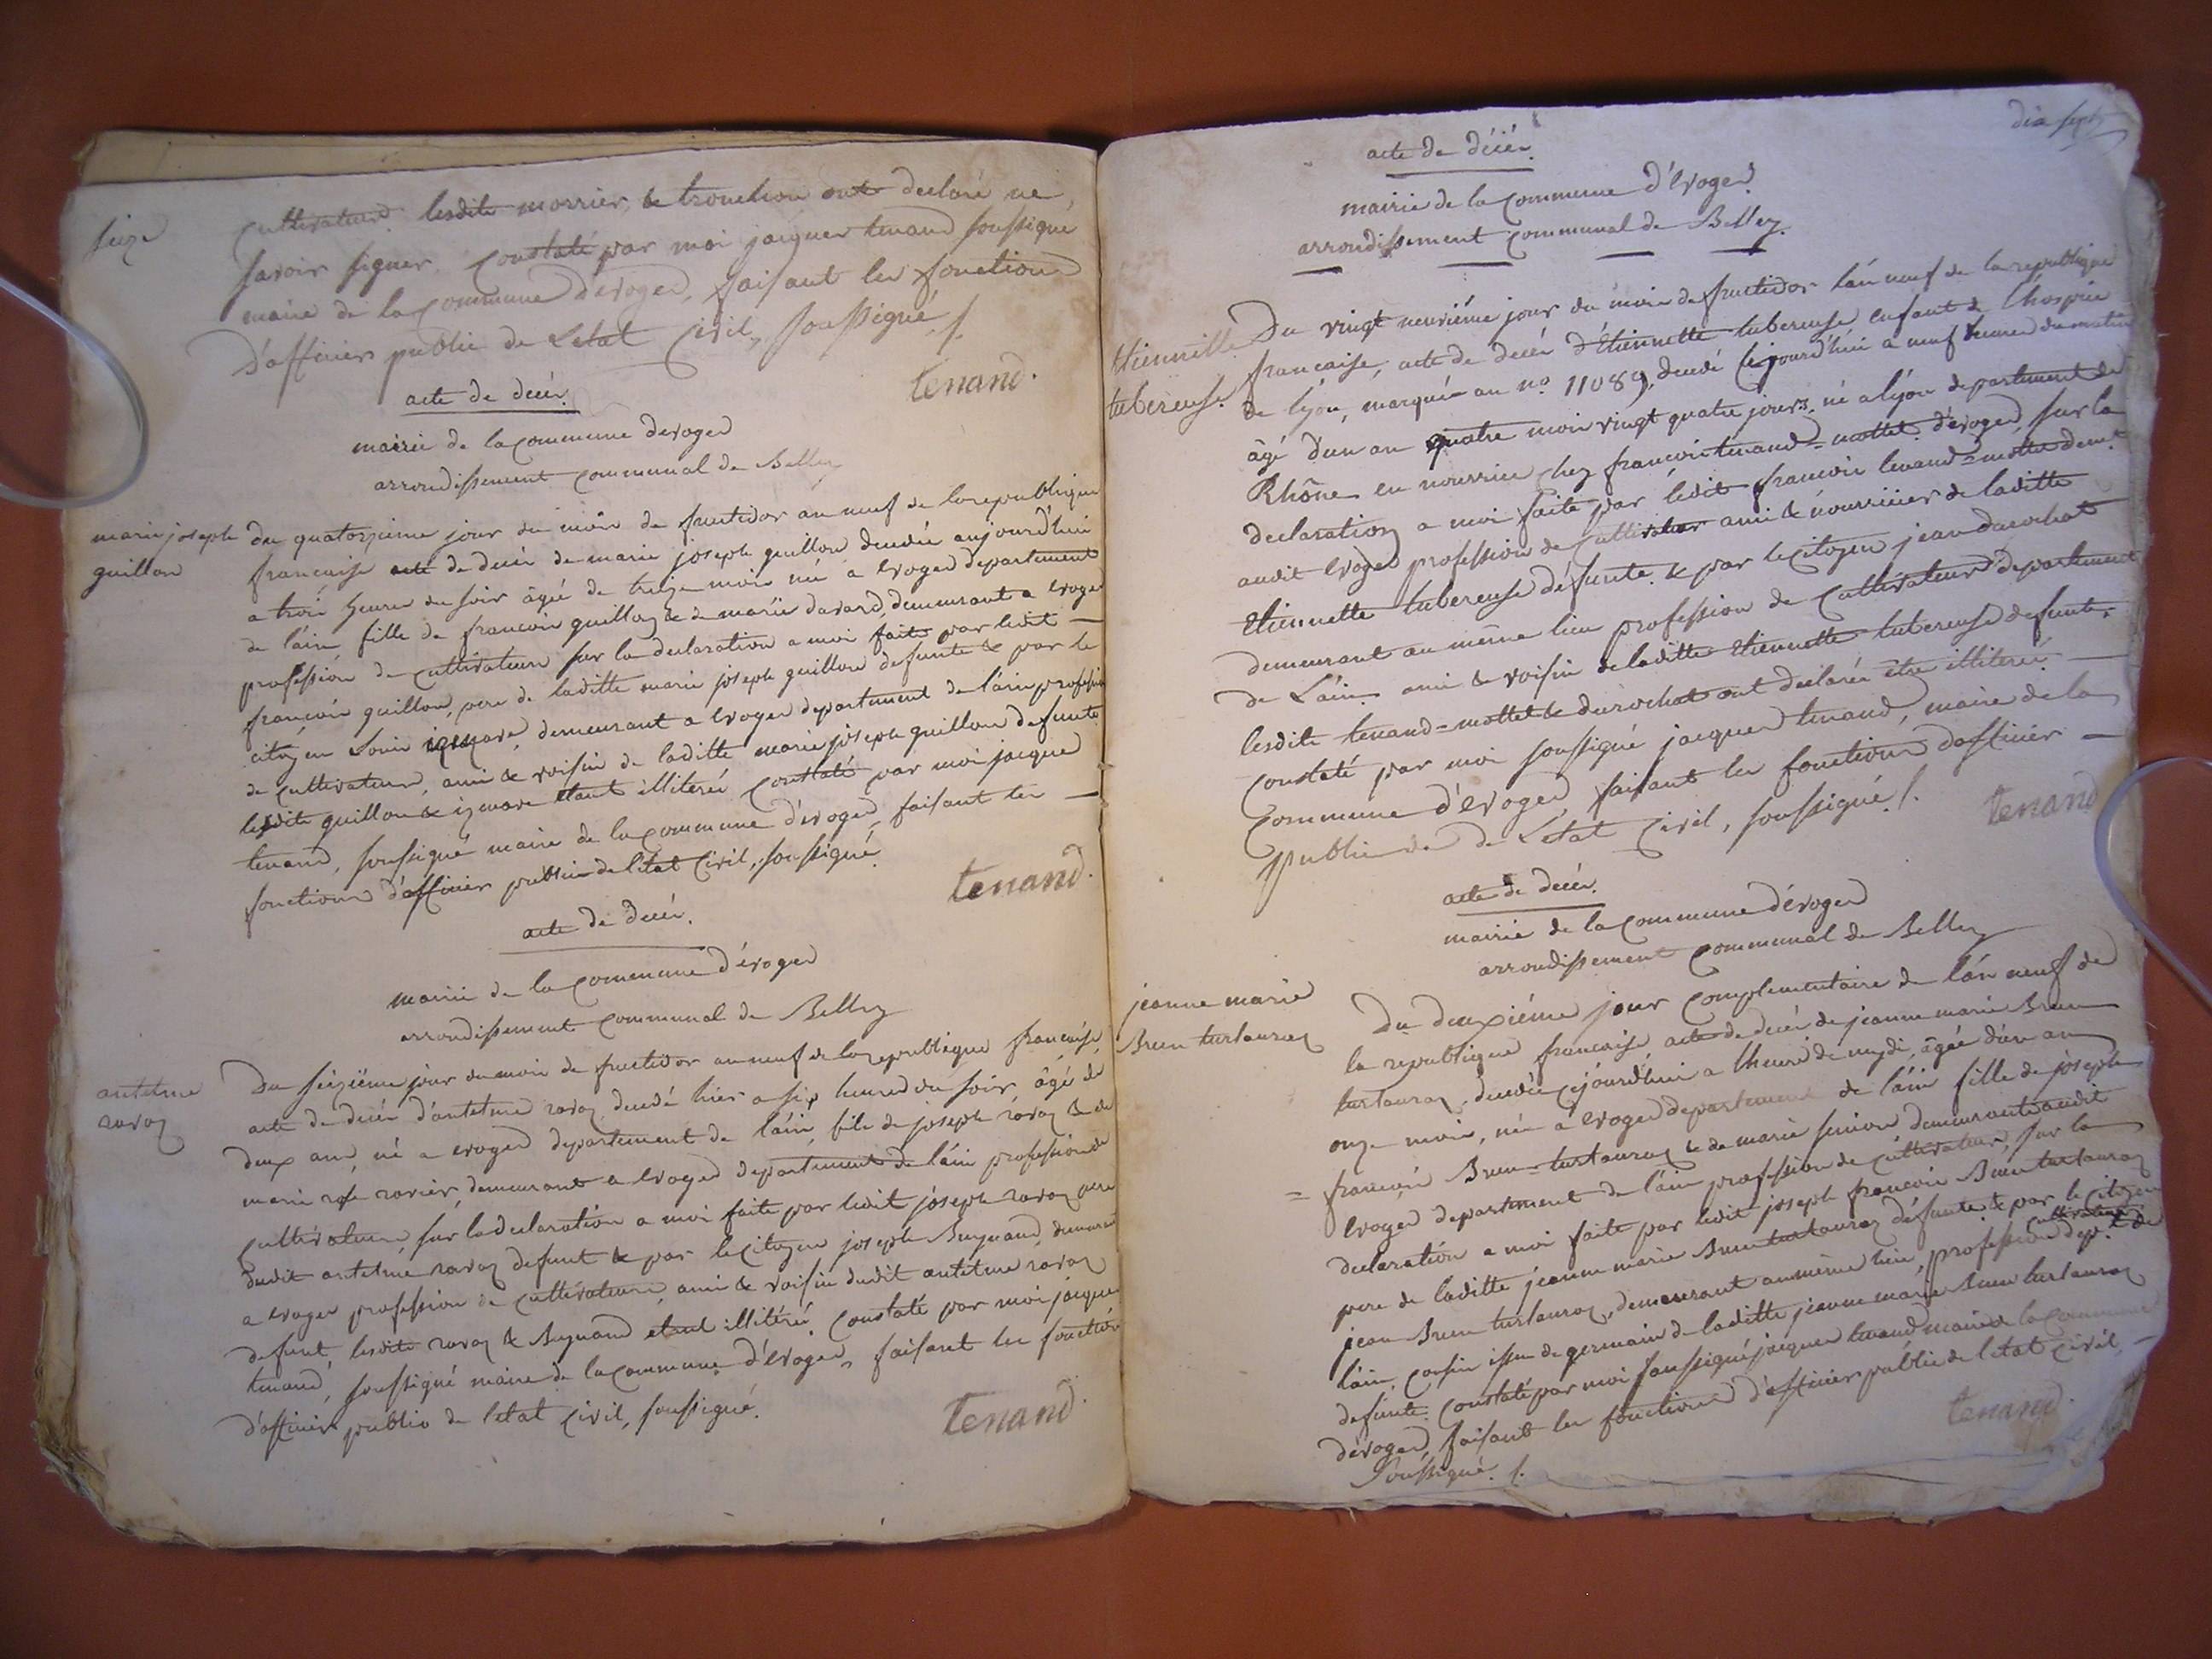 seize
cultivateurs lesdits morrier & tronchon ont declaré ne
savoir signer. Constaté par moi jacques tenand soussigné
maire de la commune d'evoges, faisant les fonctions
d'officier public de Letat Civil, soussigné /.
tenand.
acte de décès.
mairie de la commune devoges
arrondissement communal de Belley
marie joseph
guillon
du quatorzieme jour du mois de fructidor an neuf de la republique
francaise acte de decès de marie joseph guillon decedée aujourd'hui
a trois heures du soir âgée de treize mois née a Evoges departement
de l'ain, fille de francois guillon & de marie davard, demeurant a Evoges
profession de cultivateur sur la declaration a moi faite par ledit
françois guillon, pere de laditte marie joseph guillon defunte & par le
citoyen Louis demeurant a Evoges departement de l'ain profession
de cultivateur, ami & voisin de laditte marie joseph guillon defunte
lesdits guillon & étant illitérés constaté par moi jacque
tenand, soussigné maire de la commune d'évoges, faisant les
fonctions d'officier public de l'état Civil, soussigné.
tenand.
acte de decès.
mairie de la commune d'évoges
arrondissement communal de Belley
antelme
ravoz
Du seizième jour du mois de fructidor an neuf de la republique francaise
acte de decès d'antelme ravoz decedé hier a six heures du soir, âgé de
deux ans, né a evoges departement de l'ain, fils de joseph ravoz & de
marie ravier, demeurant a Evoges departement de l'ain profession de
cultivateur, sur la declaration a moi faite par ledit joseph ravoz pere
dudit antelme ravoz defunt & par le citoyen joseph demeurant
a evoges profession de cultivateur, ami & voisin dudit antelme ravoz
defunt, lesdits ravoz & étant illitérés constaté par moi jacque
tenand, soussigné maire de la commune d'évoges, faisant les fonctions
d'officier public de l'etat civil, soussigné.
tenand.
dix sept
acte de décès.
mairie de la commune d'évoges
arrondissement communal de Belley.
tubereuse.
Du vingt neuvième jour du mois de fructidor l'an neuf de la republique
francaise, acte de decès d'Etiennette tubereuse enfant de l'hospice
de lyon, marquée au no. 11089, decedé cejourd'hui a neuf heures du matin
âgé d'un an quatre mois vingt quatre jours, né a lyon departement du
Rhône en nourrice chez francois tenand=mottet d'evoges, sur la
declaration a moi faite par ledit francois tenand=mottet demt.
audit Evoges profession de cultivateur ami & nourricier de laditte
Etiennette tubereuse défunte & par le citoyen jean durochat
demeurant au même lieu profession de cultivateur departement
de L'ain ami & voisin de laditte Etiennette tubereuse defunte.
lesdits tenand=mottet & durochat ont declarés être illiterés.
constaté par moi soussigné jacques tenand, maire de la
commune d'évoges, faisant les fonctions d'officier
public de de L'etat Civil, soussigné /.
tenand
acte de décès.
mairie de la commune d'évoges
arrondissement communal de Belley
jeanne marie
Brun turtauroz
Du deuxième jour complementaire de l'an neuf de
la republique francaise acte de decès de jeanne marie Brun
turtauroz, decedée cejourd'hui a l'heure de midi, âgée d'un an
onze mois, née a Evoges departement de l'ain fille de joseph
= francois Brun=turtauroz & de marie demeurants audit
Evoges departement de l'ain profession de cultivateur, sur la
declaration a moi faite par ledit joseph francois Brun turtauroz
pere de laditte jeanne marie Brun turtauroz défunte & par le citoyen
jean Brun turtauroz, demeurant au même lieu, profession cultivateur dept. de
l'ain, cousin issu de germain de laditte jeanne marie Brun turtauroz
defunte. Constaté par moi soussigné jacques tenand maire de la commune
d'evoges, faisant les fonctions d'officier public de l'etat civil,
Soussigné. /.
tenand.